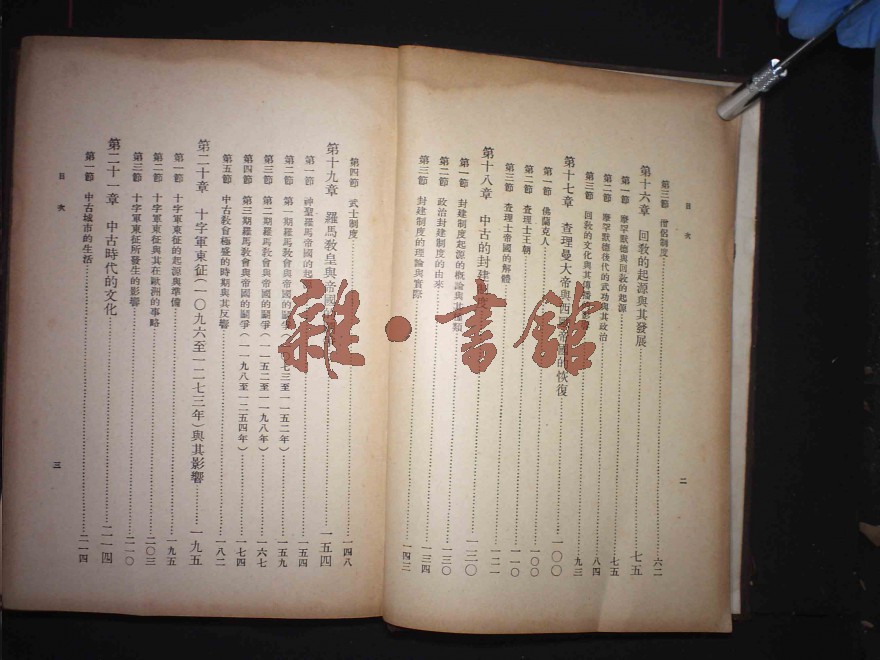 目次
第三節 僧侶制度……六二
第十六章 回敎的起源與其發展……七五
第一節 摩罕默德與回敎的起源……七五
第二節 摩罕默德後代的武功與其政治……八四
第三節 回敎的文化與其傳播的影響……九三
第十七章 查理曼大帝與西歐帝國的恢復……一〇〇
第一節 佛蘭克人……一〇〇
第二節 查理士王朝……一一〇
第三節 查理士帝國的解體……一一一
第十八章 中古的封建制度……一二〇
第一節 封建制度起源的概論與其種類……一二〇
第二節 政治封建制度的由來……一三〇
第三節 封建制度的理論與實際……一三四
一四三
二
第四節 武士制度……一四八
第十九章 羅馬敎皇與帝國……一五四
第一節 神聖羅馬帝國的起……一五四
第二節 第一期羅馬敎會與帝國的鬭爭(一〇七三至一一五二年)……一五九
第三節 第二期羅馬敎會與帝國的鬭爭(一一五二至一一九八年)……一六七
第四節 第三期羅馬敎會與帝國的鬭爭(一一九八至一二五四年)……一七四
第五節 中古敎會極盛的時期與其反響……一八二
第二十章 十字軍東征(一〇九六至一二七三年)與其影響……一九五
第一節 十字軍東征的起源與準備……一九五
第二節 十字軍東征與其在歐洲的事略……二〇三
第三節 十字軍東征所發生的影響……二一〇
第二十一章 中古時代的文化……二一四
第一節 中古城市的生活……二一四
目次
三
雜·書館